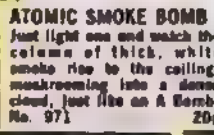 ATOMIC SMOKE BOMB
Just light one and watch th
column of thick, whit
smoke rise to the ceiling
mushrooming into a dense
cloud, just like an A Bomb
No. 971 20